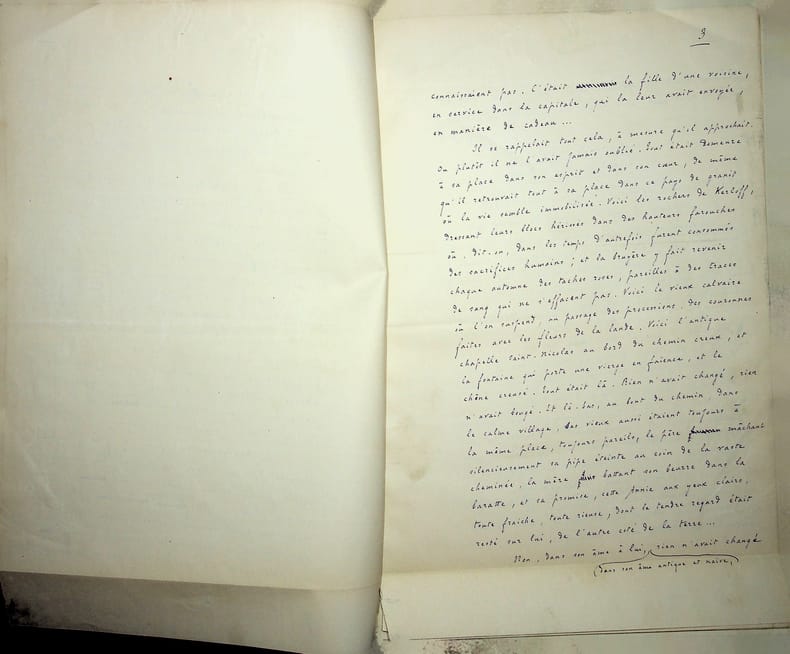 3
connaissaient pas. C'était la fille d'une voisine,
en service dans la capitale, qui la leur avait envoyée,
en manière de cadeau...
Il se rappelait tout cela, à mesure qu'il approchait.
Ou plutôt il ne l'avait jamais oublié. Tout était demeuré
à sa place dans son esprit et dans son cœur, de même
qu'il retrouvait tout à sa place dans ce pays de granit
où la vie semble immobilisée. Voici les rochers de Kerloff,
dressant leurs blocs hérissés dans des hauteurs farouches
où, dit-on, dans les temps d'autrefois furent consommés
des sacrifices humains ; et la bruyère y fait revenir
chaque automne des taches roses, pareilles à des traces
de sang qui ne s'effacent pas. Voici le vieux calvaire
où l'on suspend, au passage des processions, des couronnes
faites avec les fleurs de la lande. Voici l'antique
chapelle saint-Nicolas au bord du chemin creux, et
la fontaine qui porte une vierge en faïence, et le
chêne creusé. Tout était là. Rien n'avait changé, rien
n'avait bougé. Et là-bas, au bout du chemin, dans
le calme village, les vieux aussi étaient toujours à
la même place, toujours pareils, le père mâchant
silencieusement sa pipe éteinte au coin de la vaste
cheminée, la mère battant son beurre dans la
baratte, et sa promise, cette Annie aux yeux clairs,
toute fraîche, toute rieuse, dont le tendre regard était
resté sur lui, de l'autre côté de la terre...
Non, dans son âme à lui, rien n'avait changé
(dans son âme antique et naïve,)